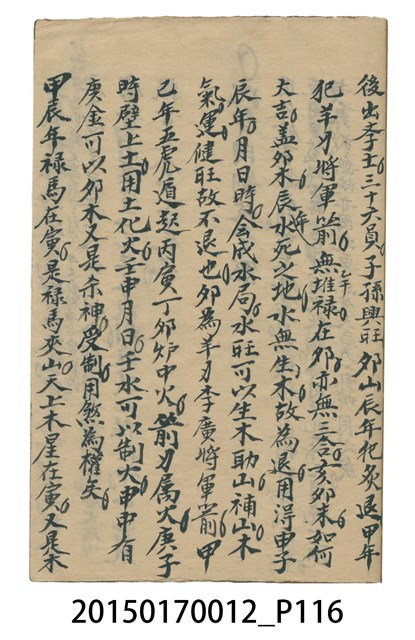 後出秀士三十六員子孫興旺卯山辰年犯炙退甲年
犯羊刃將軍箭無堆祿在卯亦無三合亥卯未如何
乙干
大吉蓋卯木辰水死之地水無生木故為退用得申子
辰年月日時会成水局水旺可以生木助山補山木
氣運健旺故不退也卯為羊刃李廣將軍箭甲
己年五虎遁起丙寅丁卯炉中火箭刃属火庚子
時壁上土用土化火壬申月日壬水可以制火申中有
庚金可以卯木又是杀神受制用煞為權矣
甲辰年禄馬在寅是禄馬夾山天上木星在寅又是木
20150170012_P116